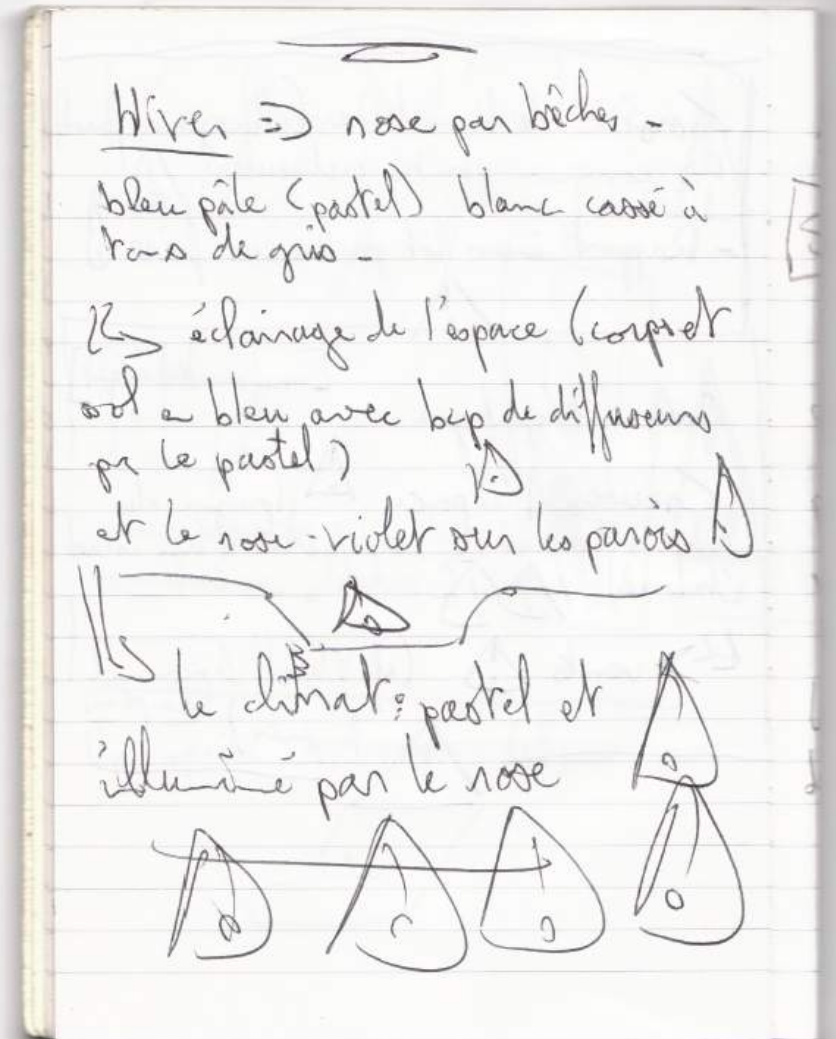 Hiver => rose par bêches -
bleu pâle (pastel) blanc cassé à
tons de gris -
éclairage de l'espace (corps et
sol en bleu avec bcp de diffuseurs
pr le pastel)
et le rose-violet sur les parois
le climat : pastel et
illuminé par le rose